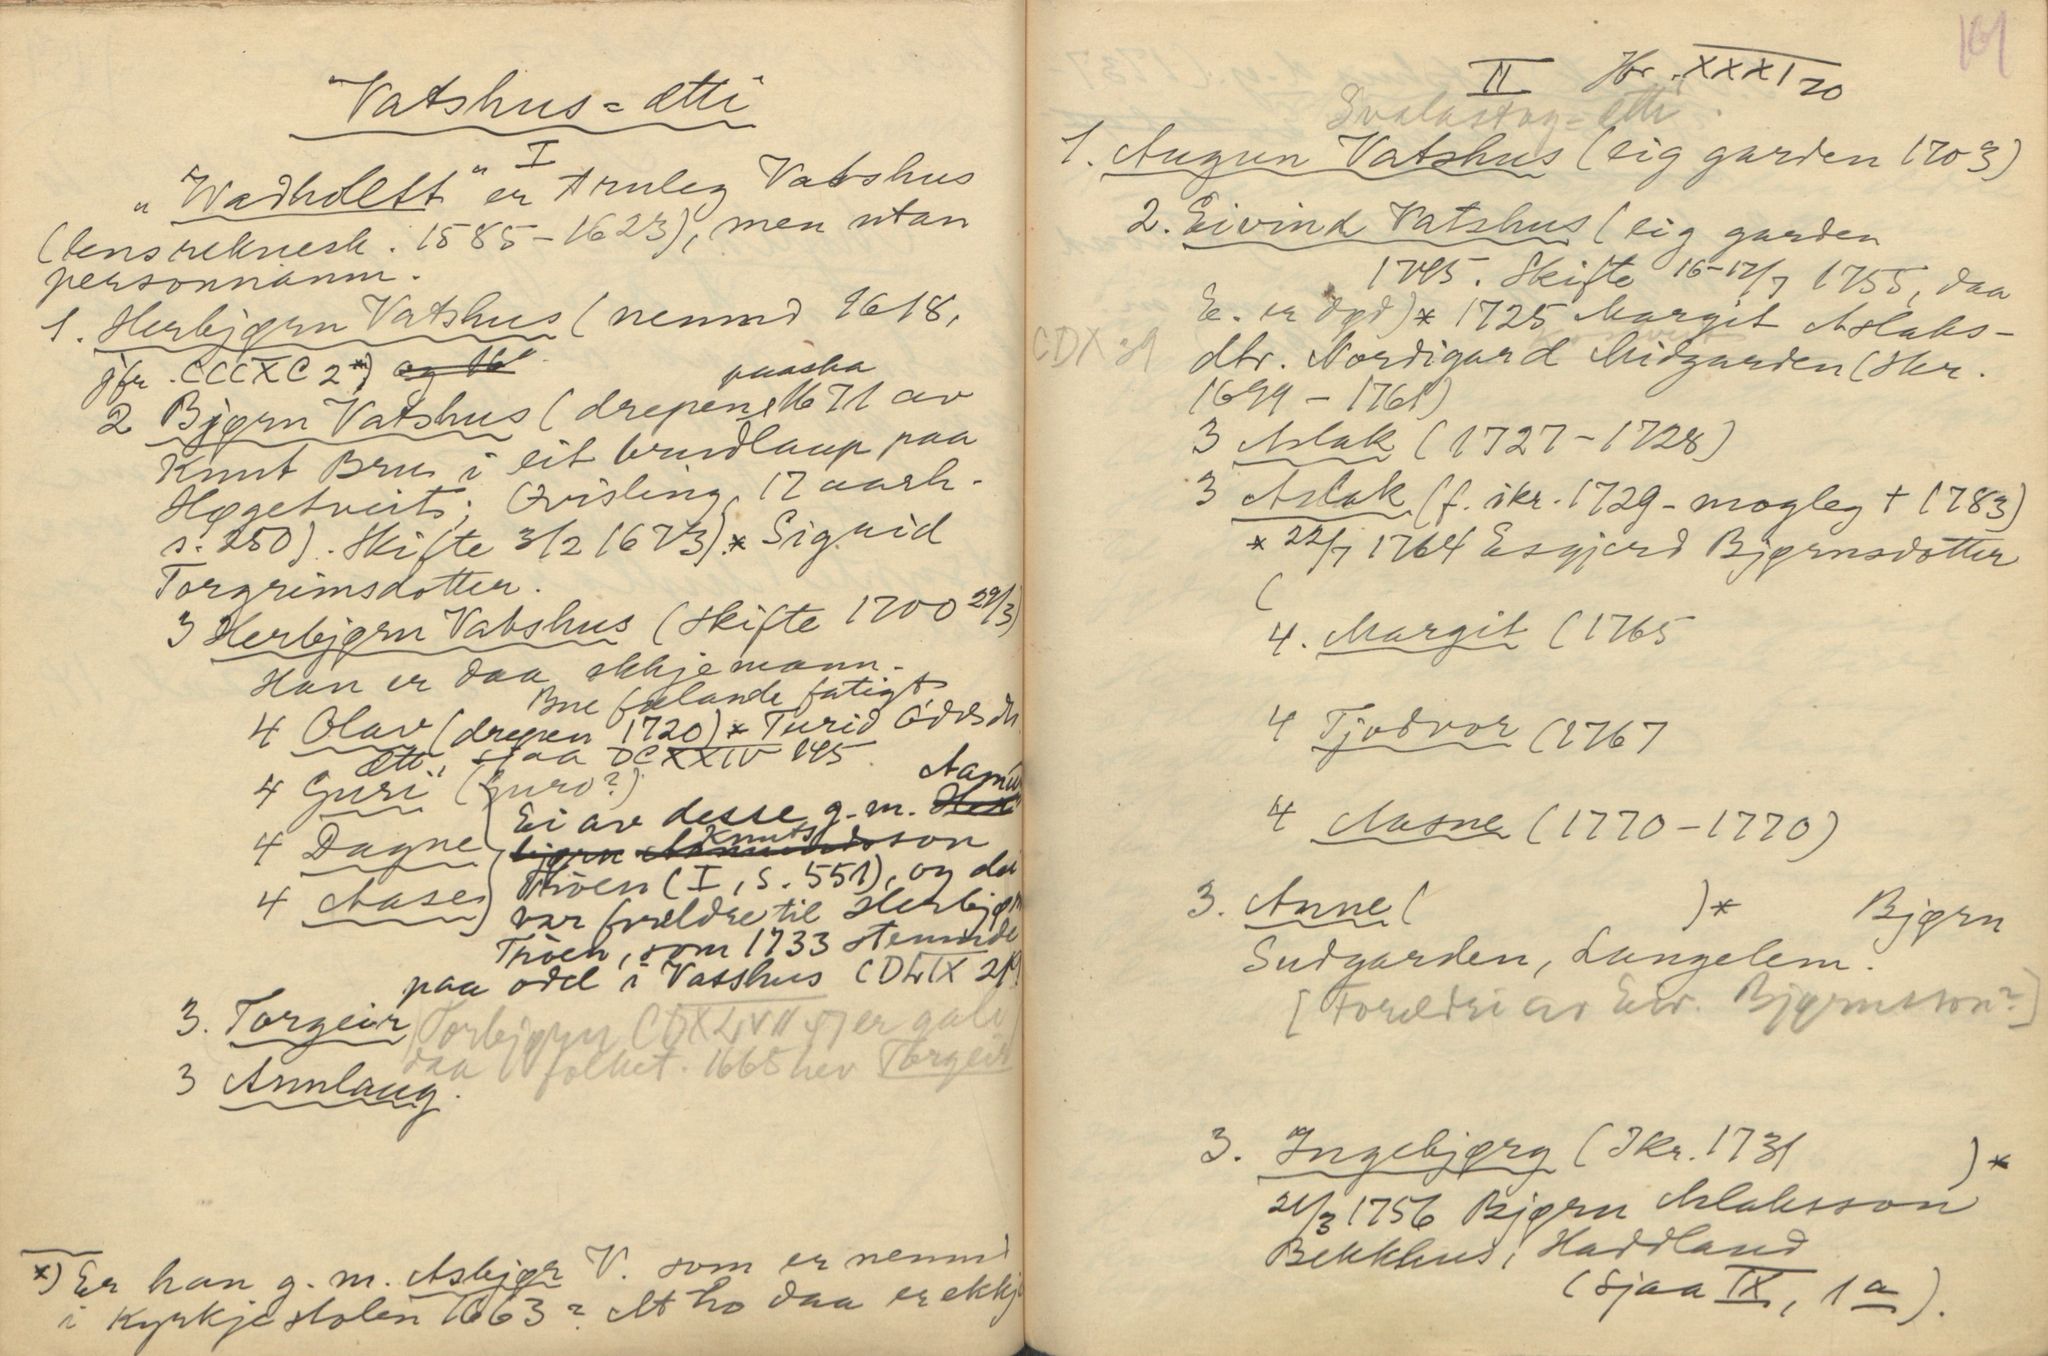 Vatshus-ætti
I
"Wadholtt" er truleg Vatshus
(lensreknesk. 1585-1623), men utan
personnamn.
1. Herbjørn Vatshus (nemnd 1618,
jfr. CCCXC 2*)
2 Bjørn Vatshus (drepen paaska 1671 av
Knut Bru i eit brudlaup paa
Høgetveit; Qvisling, 17 aarh.
s. 250). Skifte 3/2 1673) * Sigrid
Torgrimsdotter.
3 Herbjørn Vatshus (Skifte 1700 29/3)
Han er daa ekkjemann.
Bue fælande fatigt
4 Olav (drepen 1720) * Turid
Ætti, sjaa DCXXIV 145.
4 Guri (Guro?)
4 Dagne
4 Aase
Ei av desse g. m.
Knutsson
Tröen (I, s. 551), og dei
var foreldre til Herbjørn
Tröen, som 1733 stemnde
paa odel i Vasshus CDLIX
3. Torgeir
Torbjørn er gale
daa folket. 1665 hev Torgeir
3 Annlaug.
*) Er han g. m. Asbjør V. som er nemnd
i Kyrkjestolen 1663? At ho daa er ekkje
II Hr. XXXI 20
Svalastog-ætti.
1. Augun Vatshus (eig garden 1703)
2. Eivind Vatshus (eig garden
1745. Skifte 16-17/7 1755, daa
E. er død) * 1725 Margit Aslaks-
CDX 29
dtr. Nordigard Midgarden (Skr.
1699 - 1761)
3 Aslak (1727-1728)
3 Aslak (f. ikr. 1729 - mogleg + 1783)
* 22/7 1764 Esgjerd Bjørnsdotter
(
4. Margit (1765
4 Tjodvor (1767
4 Aasne (1770-1770)
3. Anne ( ) * Bjørn
Sudgarden, Langelem.
[Foreldri av Eiv. Bjørnsson?]
3. Ingebjørg (Ikr. 1731 ) *
21/3 1756 Bjørn Aslaksson
Bekkhus, Haddland
(sjaa IX, 1 a).